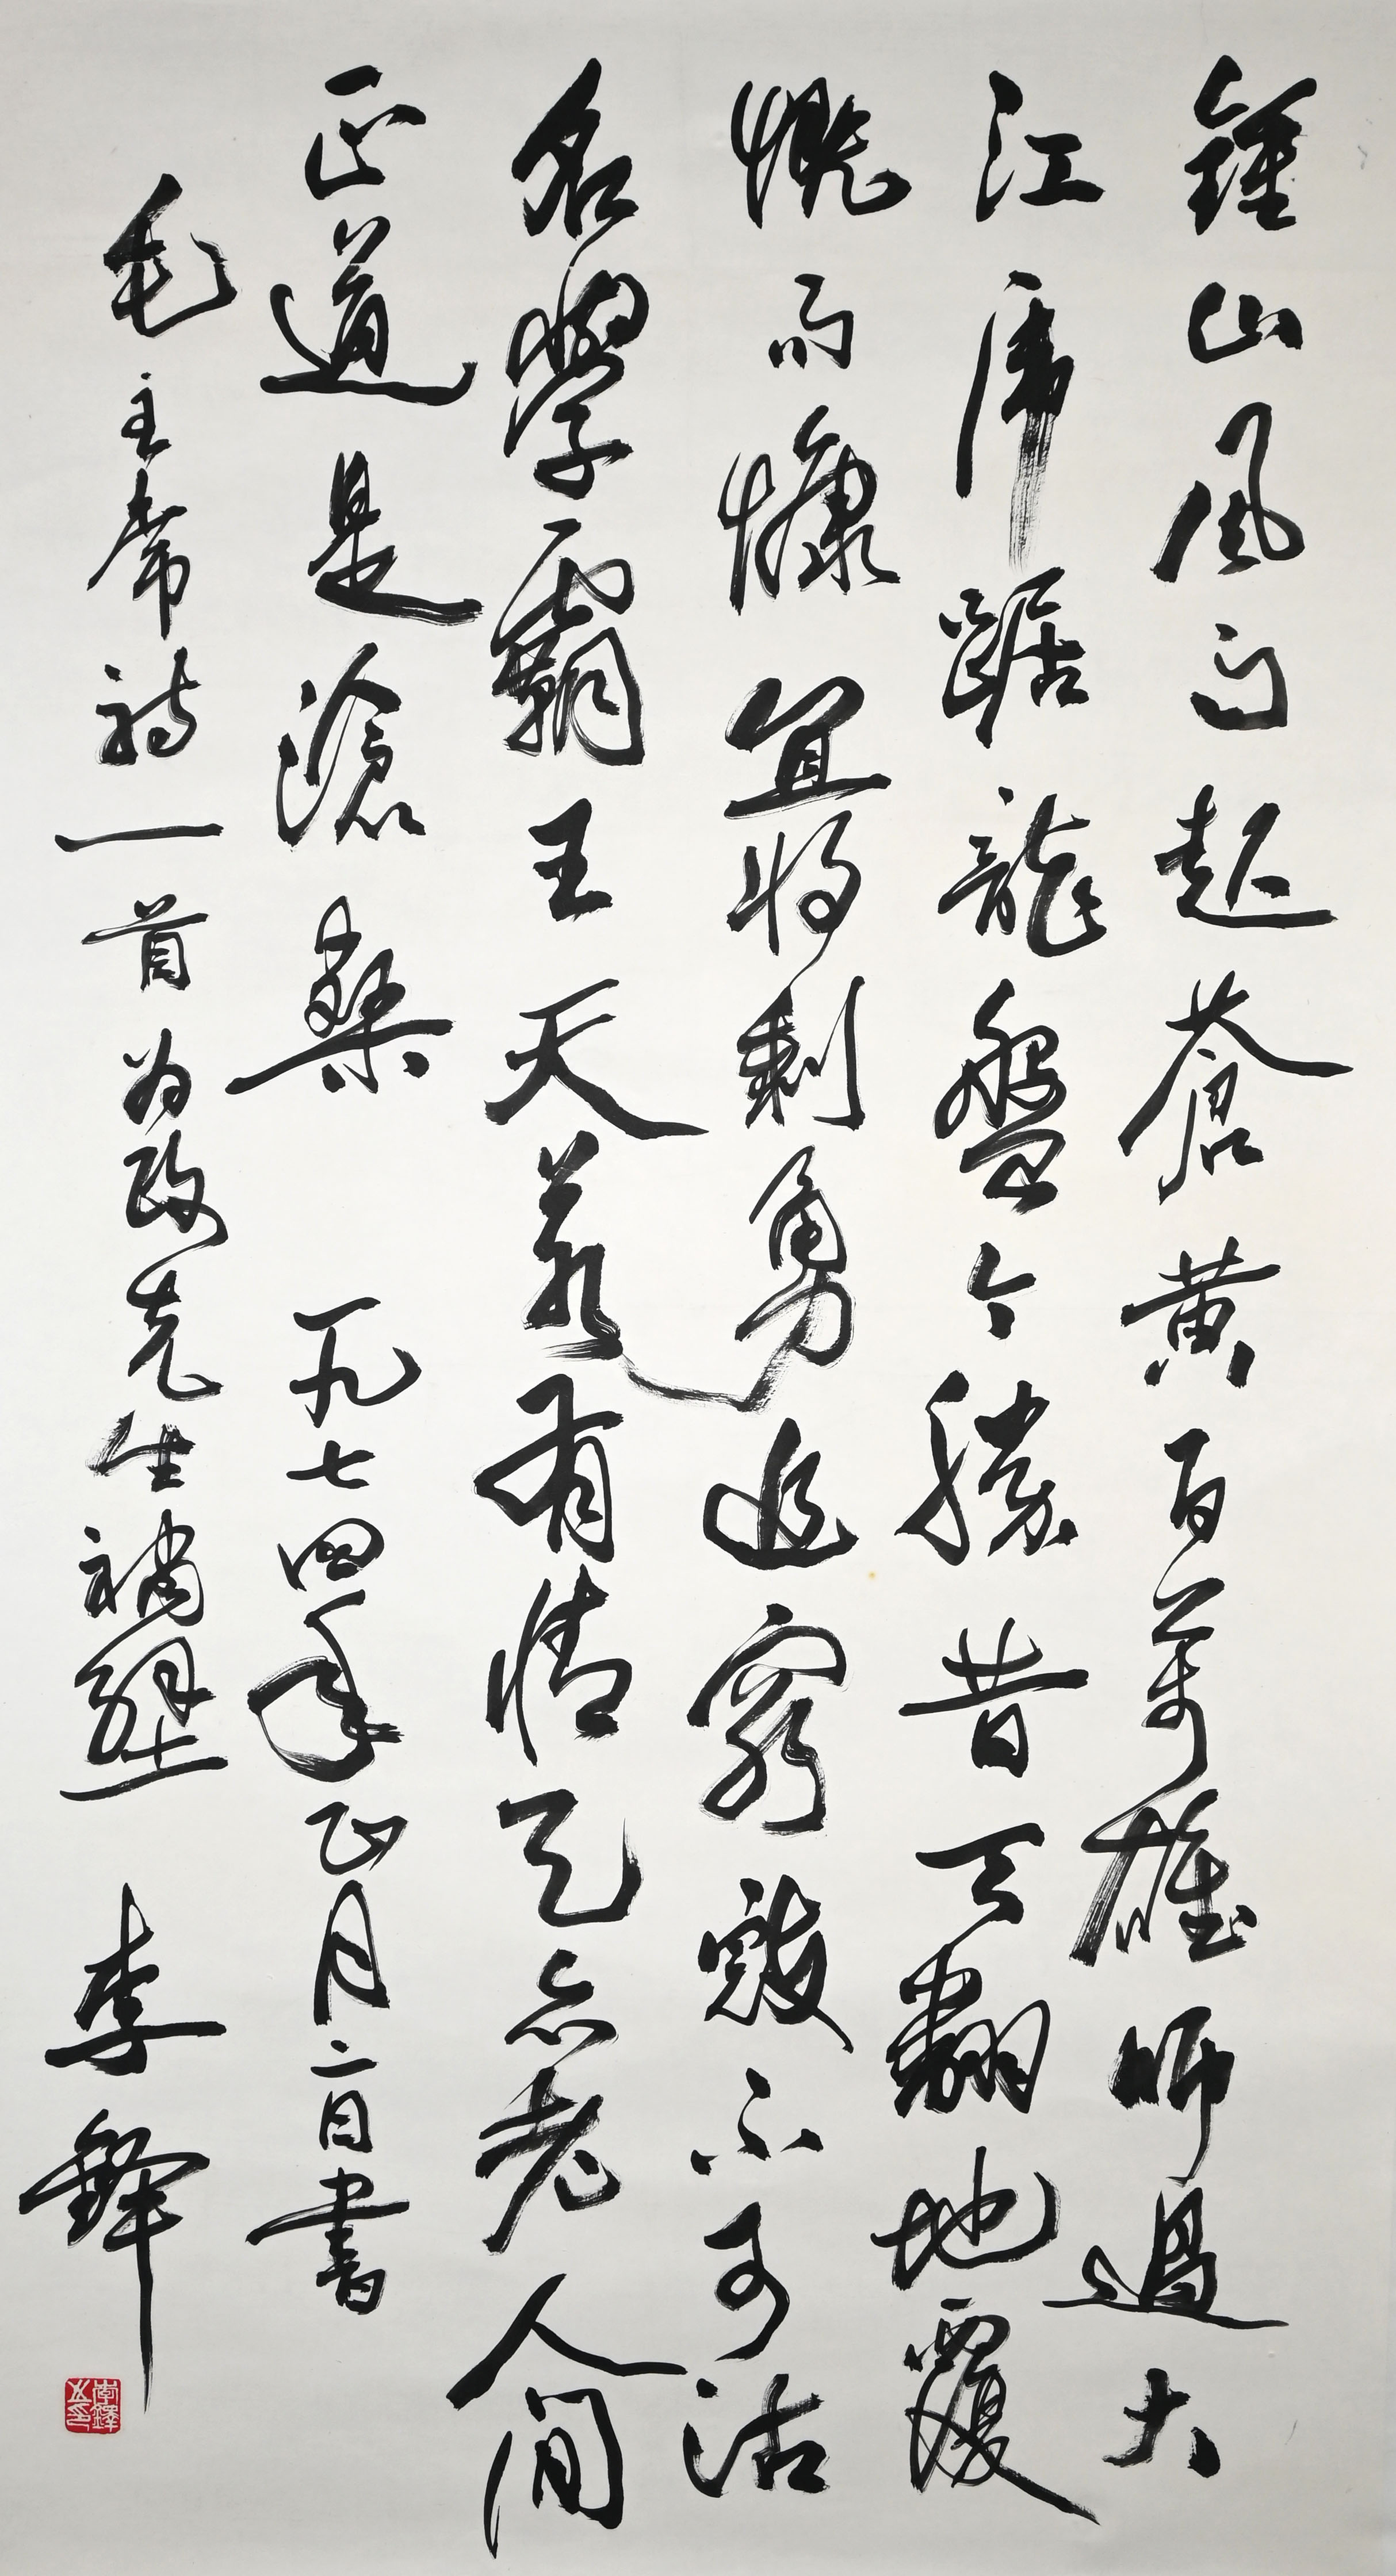 鍾山風雨起蒼黃百萬雄師過大
江虎踞龍盤今勝昔天翻地覆
慨而慷宜將剩勇追窮寇不可沽
名學霸王天若有情天亦老人間
正道是滄桑 一九七四年正月二日書
毛主席詩一首為政先生補壁 李鐸
李鐸之印